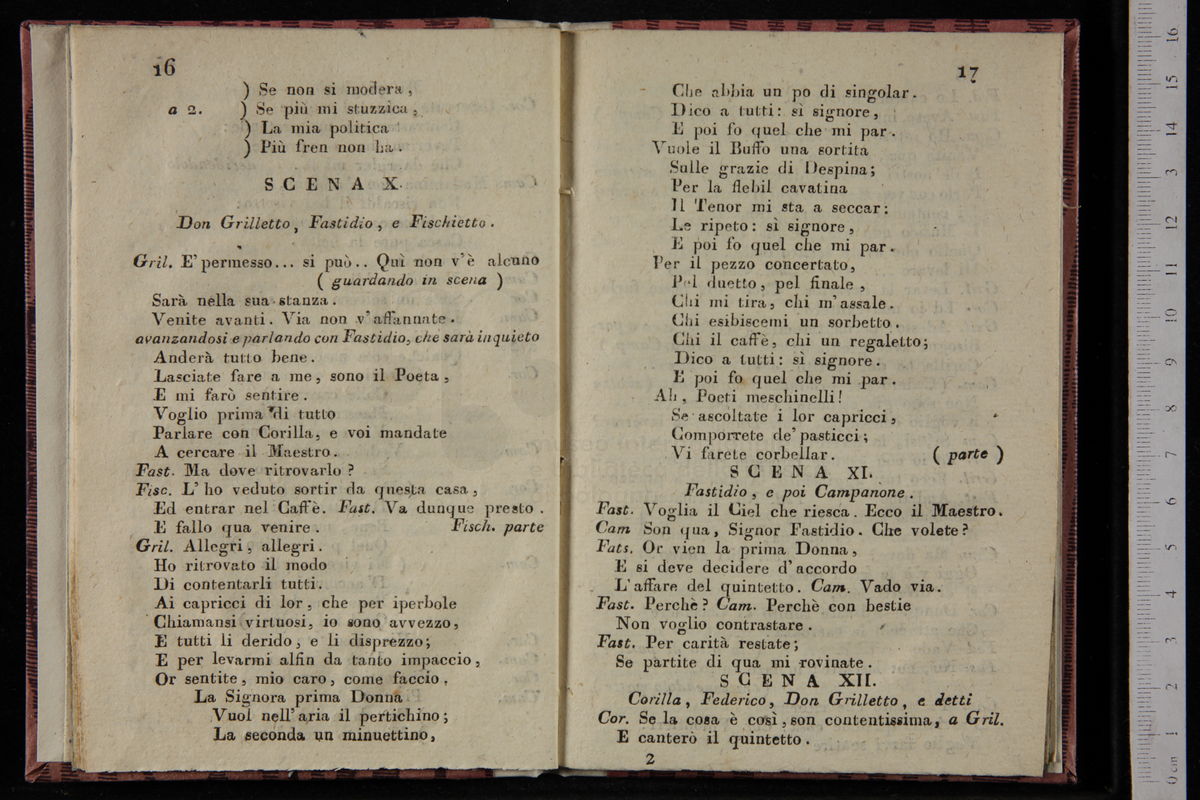 16
) Se non si modera,
a 2. ) Se più mi stuzzica,
) La mia politica
) Più fren non ha.
SCENA X.
Don Grilletto, Fastidio, e Fischietto.
Gril. E' permesso... si può.. Quì non v'è alcuno
( guardando in scena )
Sarà nella sua stanza.
Venite avanti. Via non v'affannate.
avanzandosi e parlando con Fastidio, che sarà inquieto
Anderà tutto bene.
Lasciate fare a me, sono il Poeta,
E mi farò sentire.
Voglio prima di tutto
Parlare con Corilla, e voi mandate
A cercare il Maestro.
Fast. Ma dove ritrovarlo?
Fisc. L'ho veduto sortir da questa casa,
Ed entrar nel Caffè. Fast. Va dunque presto.
E fallo qua venire. Fisch. parte
Gril. Allegri, allegri.
Ho ritrovato il modo
Di contentarli tutti.
Ai capricci di lor, che per iperbole
Chiamansi virtuosi, io sono avvezzo,
E tutti li derido, e li disprezzo;
E per levarmi alfin da tanto impaccio,
Or sentite, mio caro, come faccio,
La Signora prima Donna
Vuol nell'aria il pertichino;
La seconda un minuettino,
17
Che abbia un po di singolar.
Dico a tutti: sì signore,
E poi fo quel che mi par.
Vuole il Buffo una sortita
Sulle grazie di Despina;
Per la flebil cavatina
Il Tenor mi sta a seccar:
Le ripeto: sì signore,
E poi fo quel che mi par.
Per il pezzo concertato,
Pel duetto, pel finale,
Chi mi tira, chi m'assale.
Chi esibiscemi un sorbetto,
Chi il caffè, chi un regaletto;
Dico a tutti: sì signore.
E poi fo quel che mi par.
Ah, Poeti meschinelli!
Se ascoltate i lor capricci,
Comporrete de' pasticci;
Vi farete corbellar. ( parte )
SCENA XI.
Fastidio, e poi Campanone.
Fast. Voglia il Ciel che riesca. Ecco il Maestro.
Cam Son qua, Signor Fastidio. Che volete?
Fats. Or vien la prima Donna,
E si deve decidere d'accordo
L'affare del quintetto. Cam. Vado via.
Fast. Perchè? Cam. Perchè con bestie
Non voglio contrastare.
Fast. Per carità restate;
Se partite di qua mi rovinate.
SCENA XII.
Corilla, Federico, Don Grilletto, e detti
Cor. Se la cosa è così, son contentissima, a Gril.
E canterò il quintetto.
2
0 cm 1 2 3 4 5 6 7 8 9 10 11 12 13 14 15 16